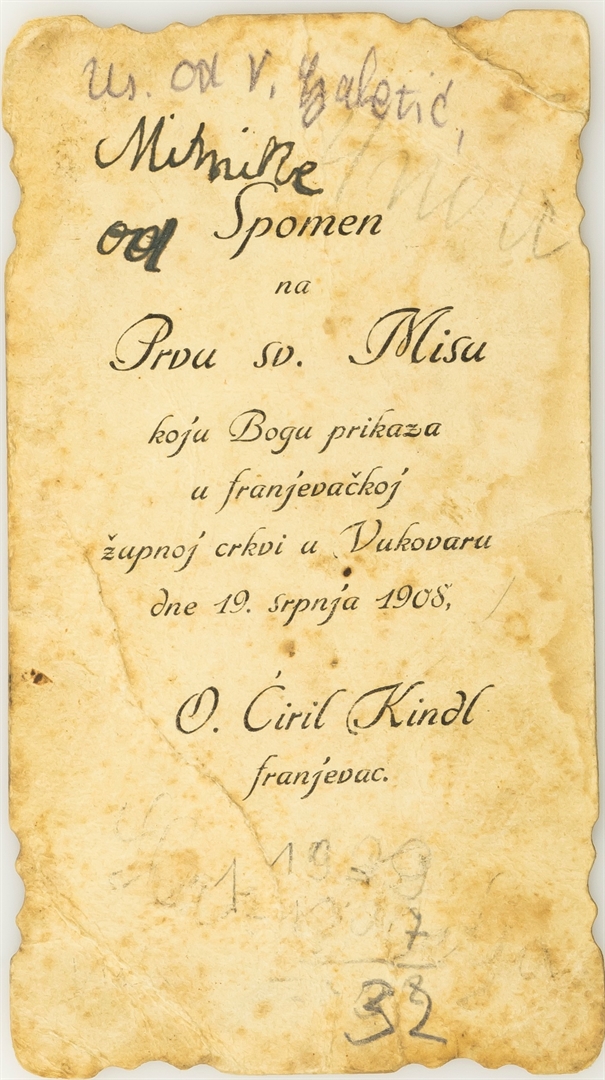 Us. od V. Galetić,
Mitnike
od
Spomen
na
Prvu sv. Misu
koju Bogu prikaza
u franjevačkoj
župnoj crkvi u Vukovaru
dne 19. srpnja 1908,
O. Ćiril Kindl
franjevac.
7
32